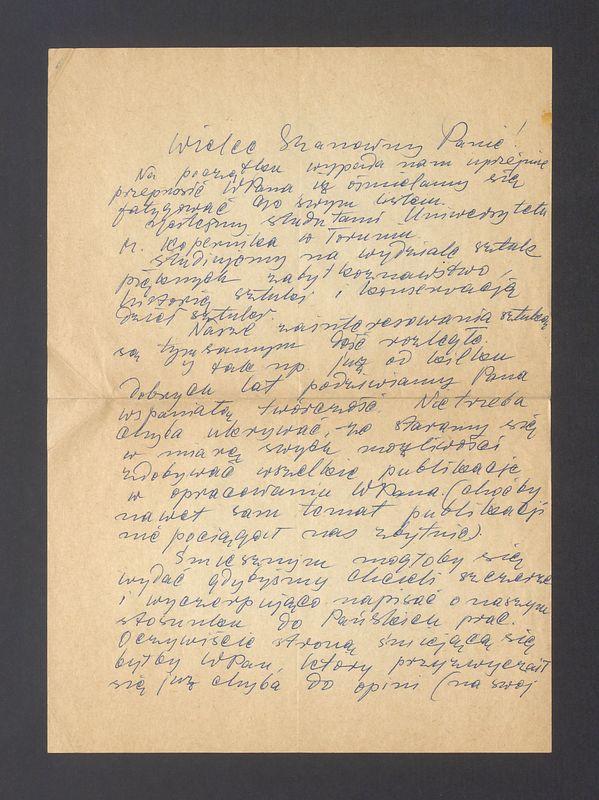 Wielce Szanowny Panie!
Na początku wypada nam uprzejmie
przeprosić WPana iż ośmielamy się
fatygować Go swym listem.
Jesteśmy studentami Uniwersytetu
M. Kopernika w Toruniu
Studiujemy na wydziale sztuk
pięknych zabytkoznawstwo,
historię sztuki i konserwację
dzieł sztuki
Nasze zainteresowania sztuką
są tym samym dość rozległe.
I tak np już od kilku
dobrych lat podziwiamy Pana
wspaniałą twórczość. Nie trzeba
chyba ukrywać, że staramy się
w miarę swych możliwości
zdobywać wszelkie publikacje
w opracowaniu WPana (choćby
nawet sam temat publikacji
nie pociągał nas zbytnio).
Śmiesznym mogłoby się
wydać gdybyśmy chcieli szczerze
i wyczerpująco napisać o naszym
stosunku do Pańskich prac.
Oczywiście stroną śmiejącą się
byłby WPan, który przyzwyczaił
się już chyba do opini (na swój